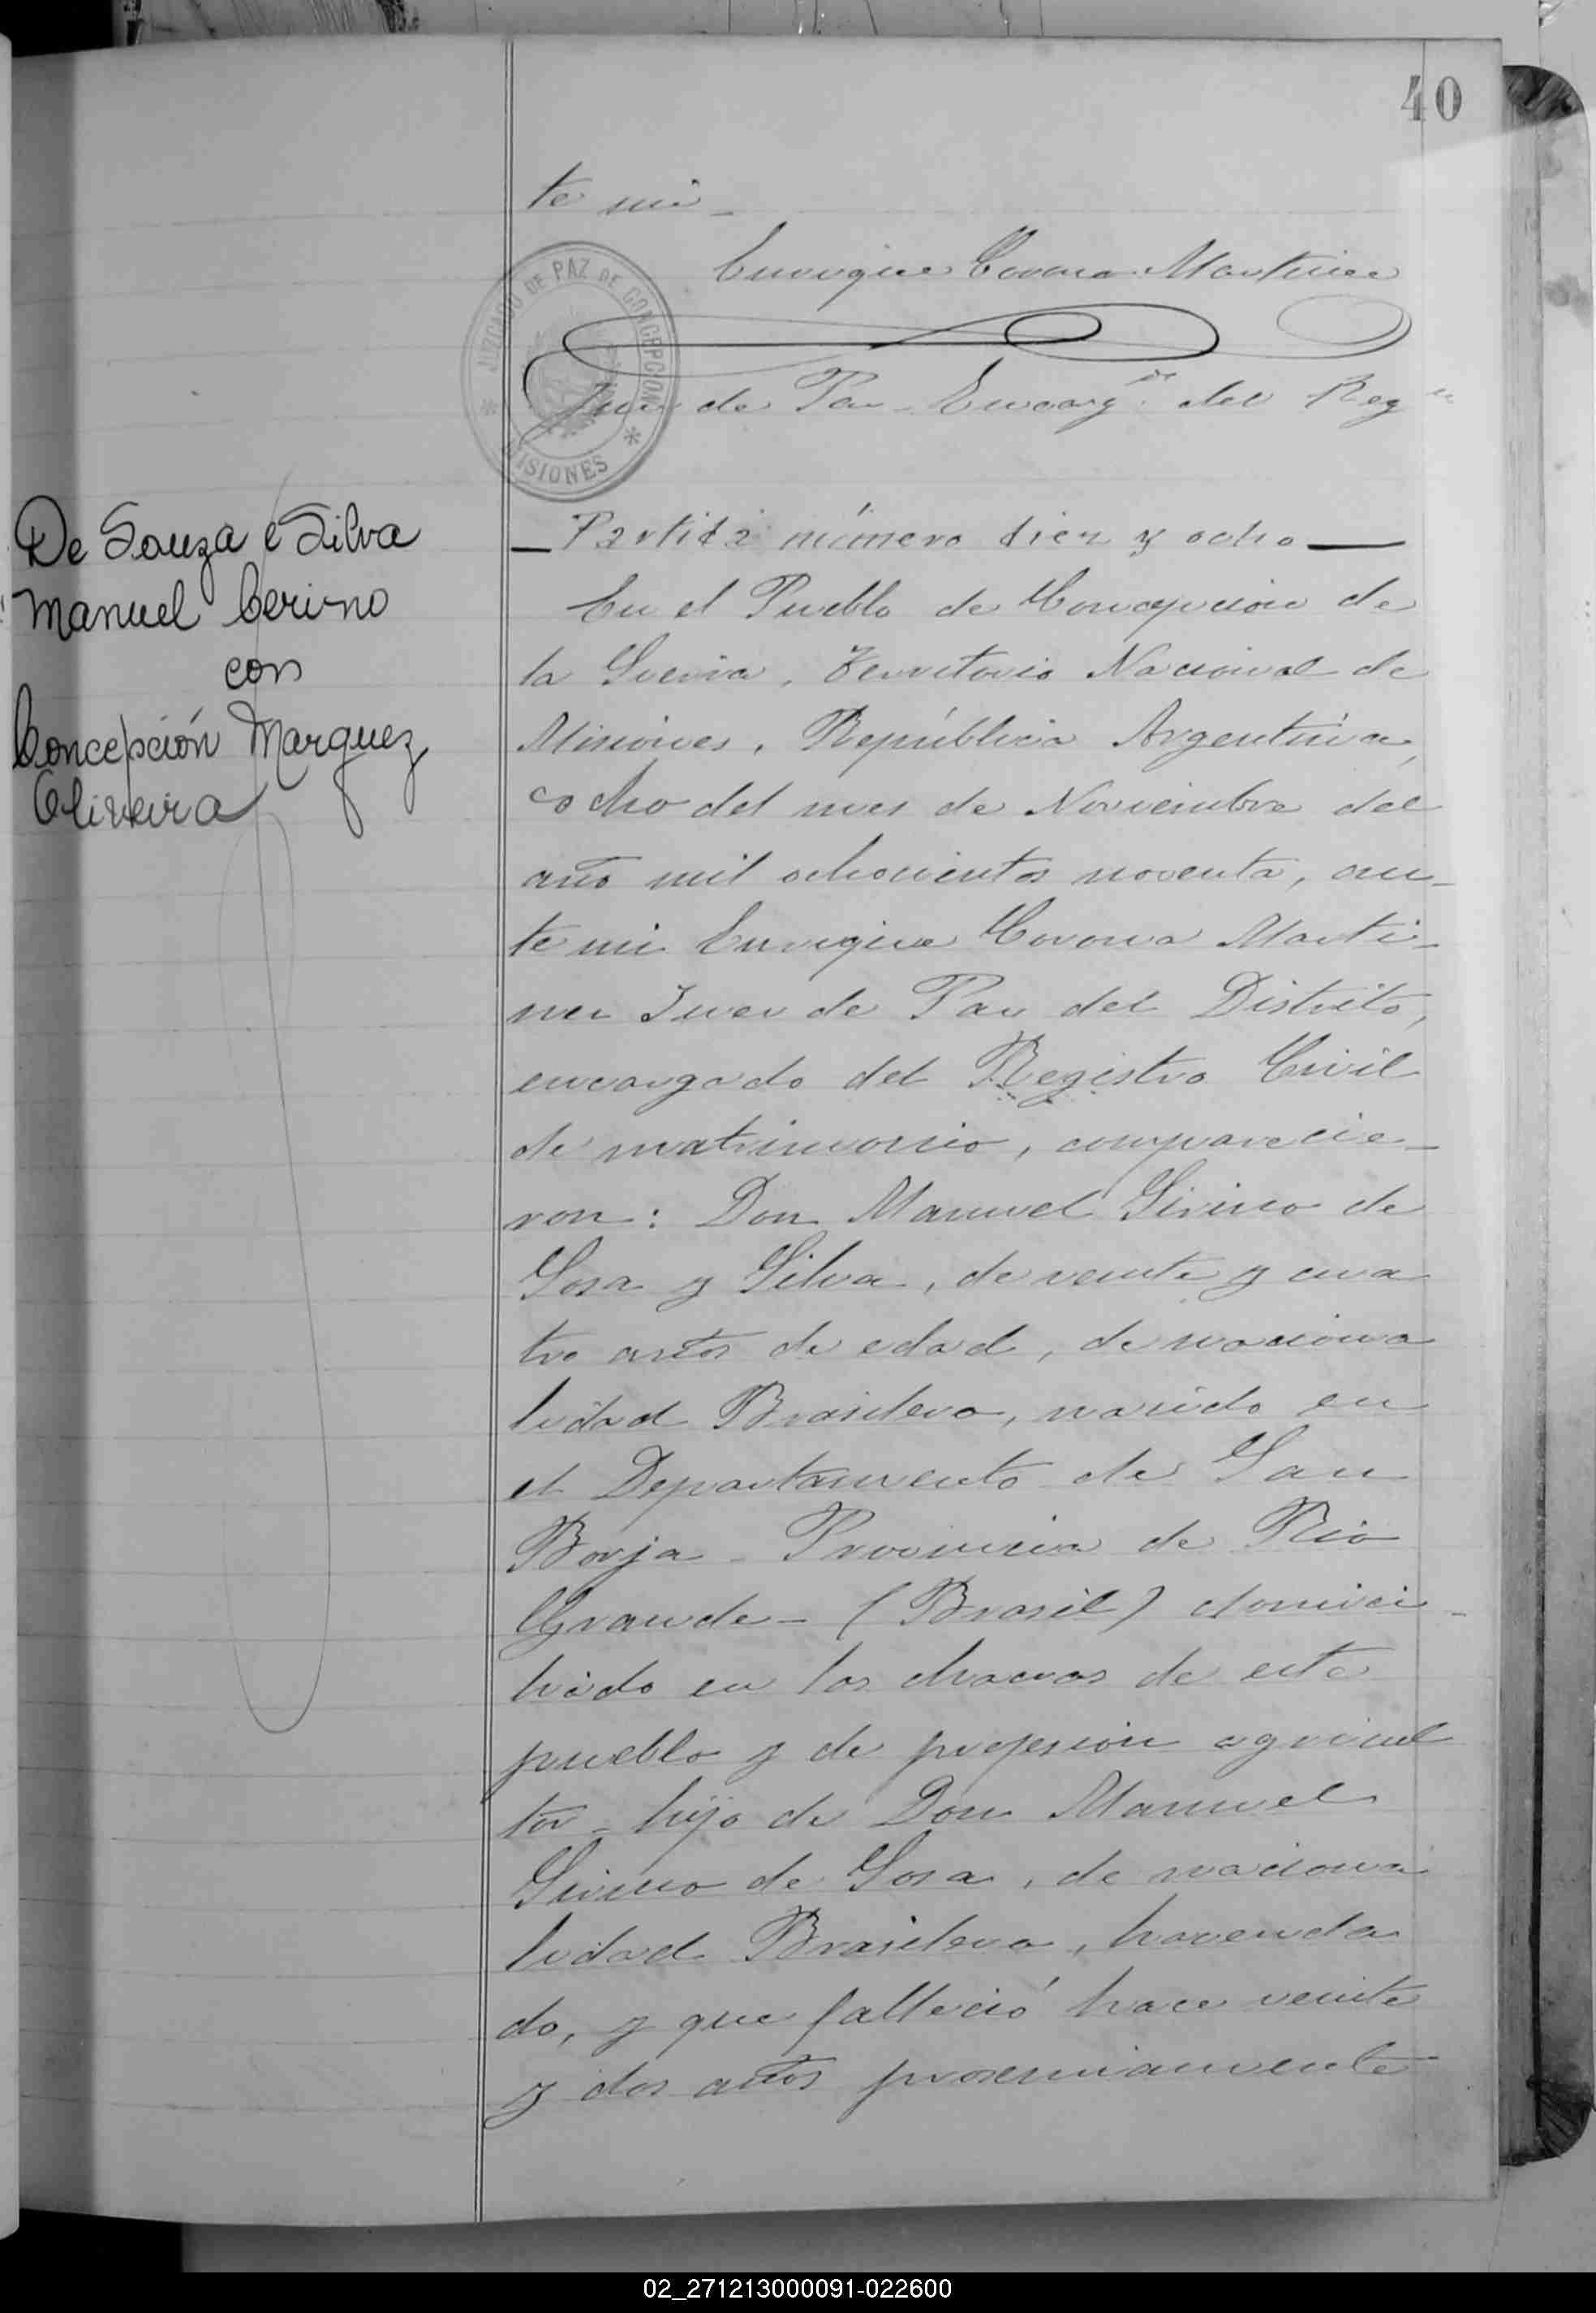 40
te mi
Enrique Corona Martinez
JUZGADO DE PAZ DE CONCEPCION
MISIONES
Juez de Paz Encargdo del Reg
De Souza e Silva
Manuel Cerino
con
Concepción Marquez
Oliveira
Partida número diez y ocho
En el Pueblo de Concepcion de
la Sierra, Territorio Nacional de
Misiones, República Argentina,
ocho del mes de Noviembre del
año mil ochocientos noventa, an-
te mi Enrique Corona Marti-
nez Juez de Paz del Distrito,
encargado del Registro Civil
de matrimonio, comparecie-
ron: Don Manuel Sirino de
Sosa y Silva, de veinte y cua
tro años de edad, de naciona
lidad Brasilera, nacido en
el Departamento de San
Borja - Provincia de Rio
Grande - (Brasil) domici-
liado en las chacras de este
pueblo y de profesion agricul
tor - hijo de Don Manuel
Sirino de Sosa, de naciona
lidad Brasilera, hacenda
do, y que falleció hace veinte
y dos años proximamente
02_271213000091-022600